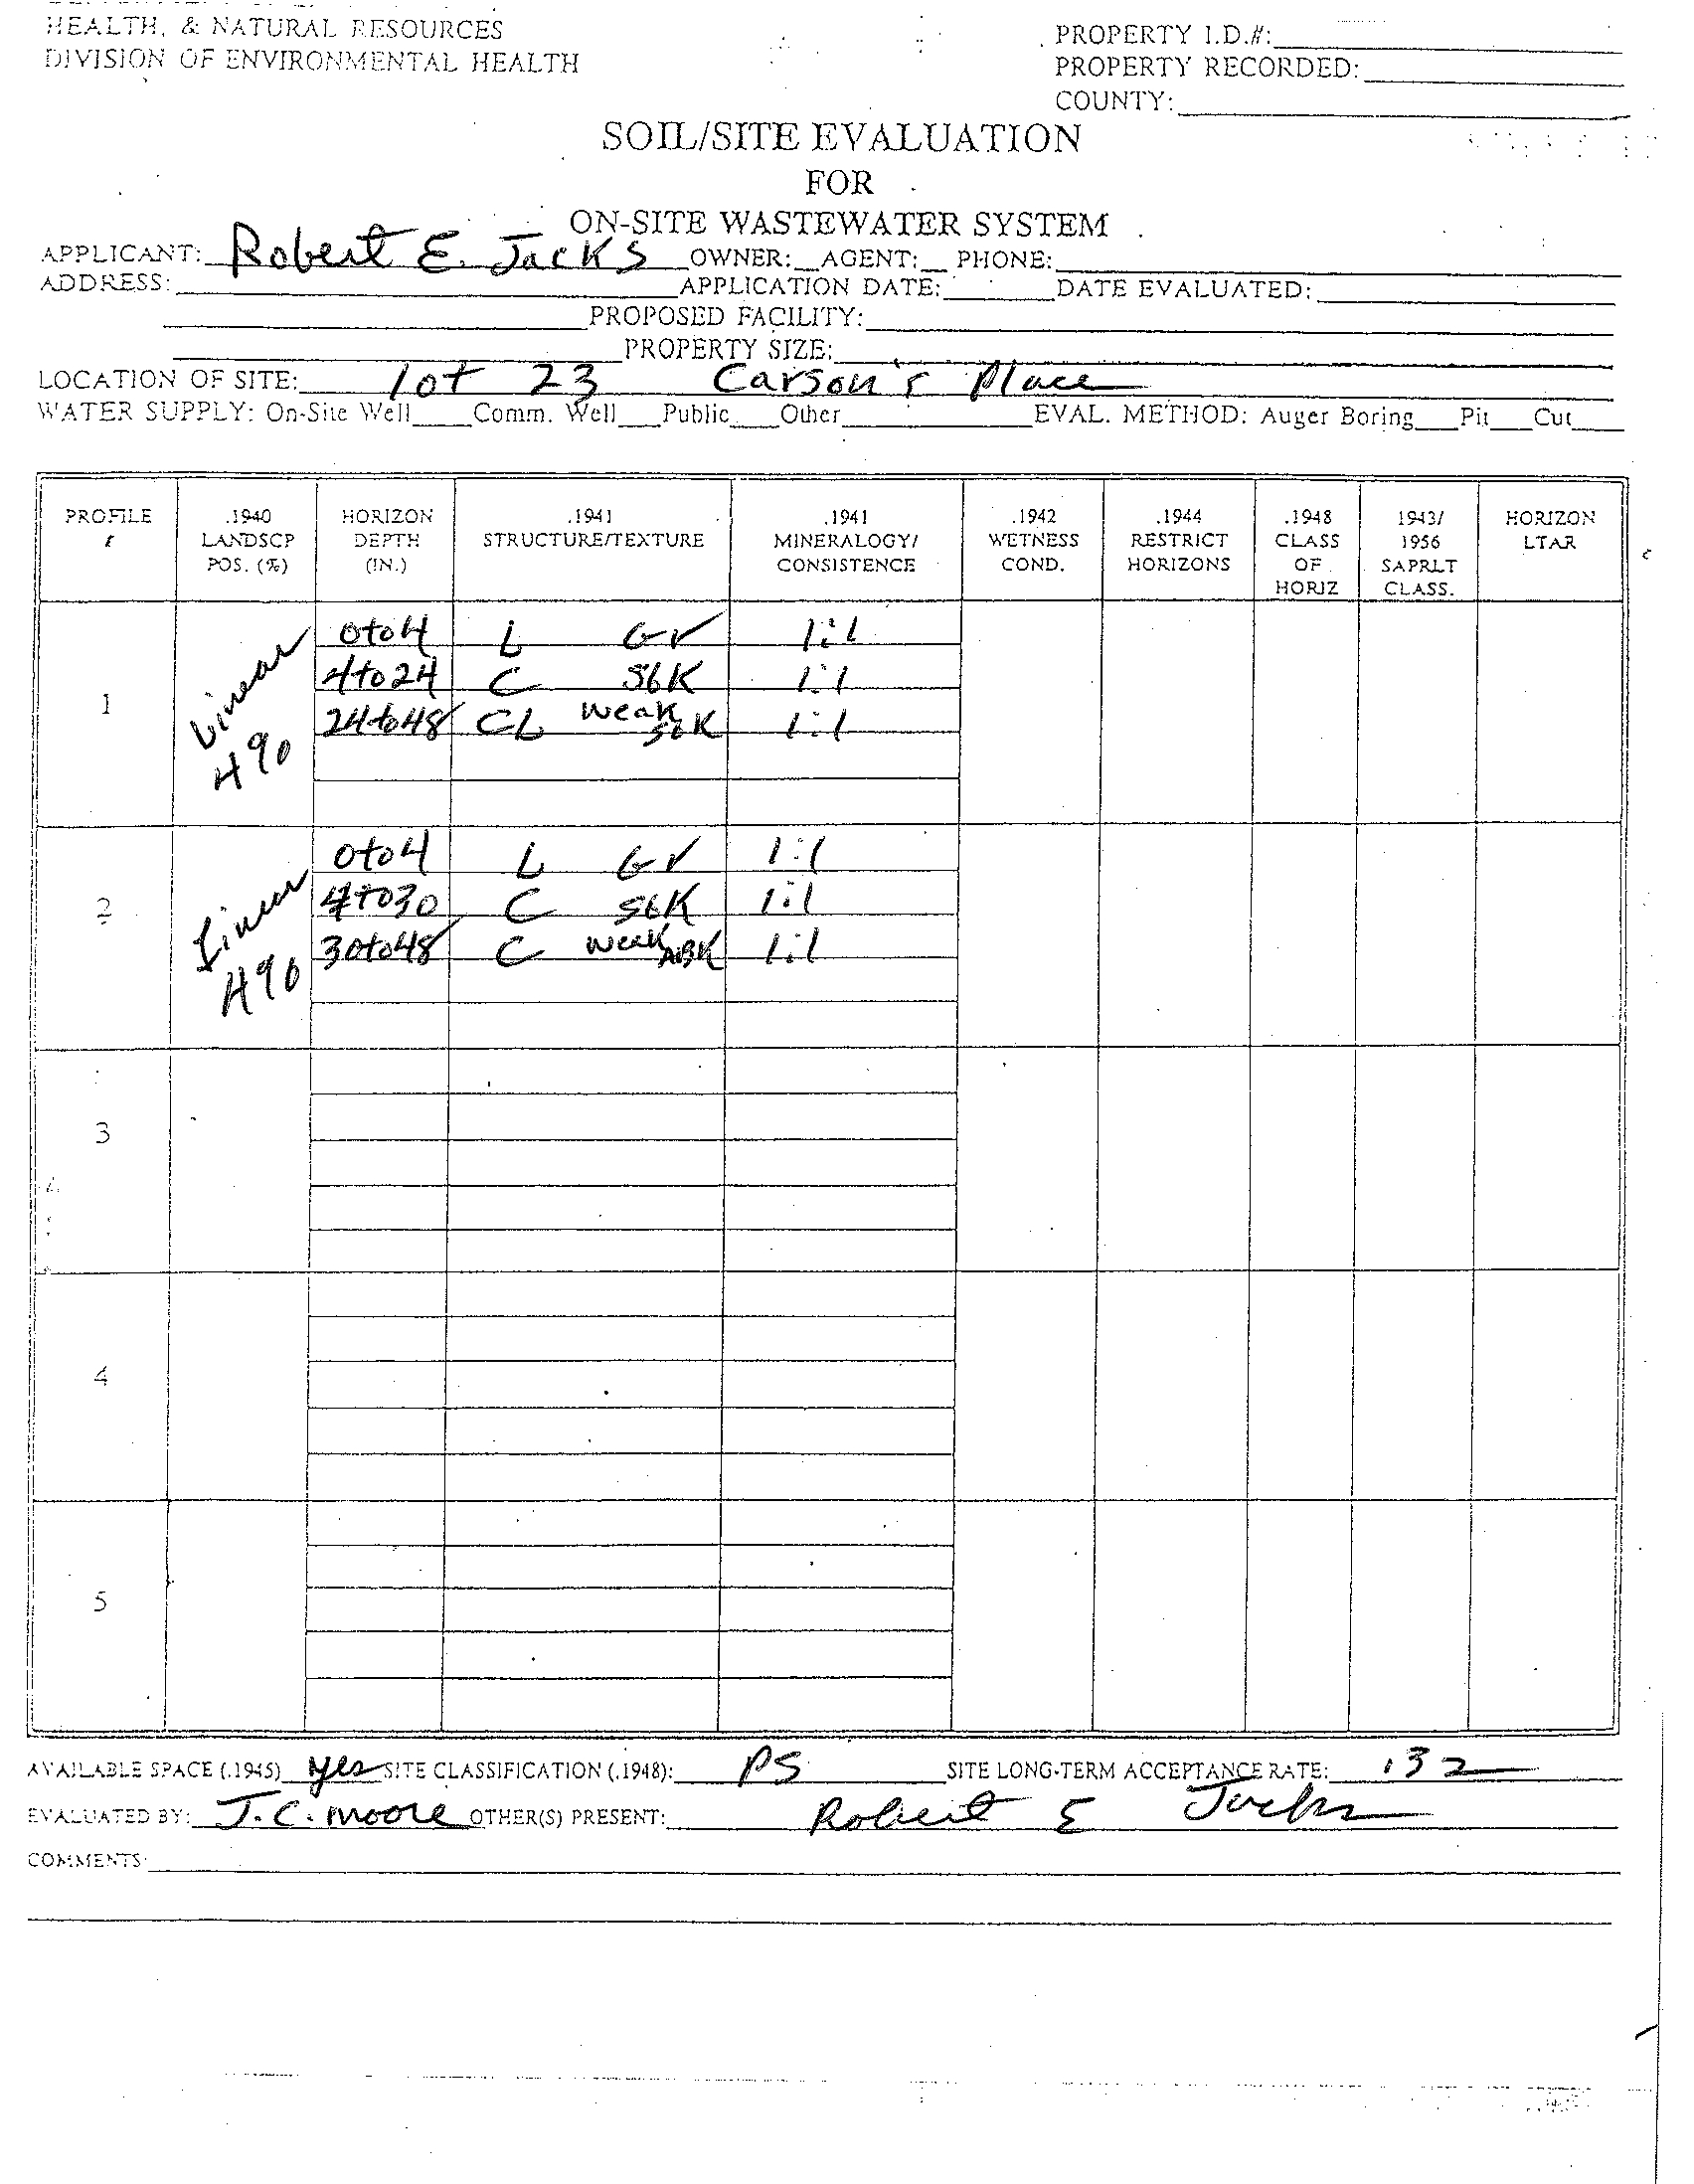 HEALTH, & NATURAL RESOURCES
DIVISION OF ENVIRONMENTAL HEALTH
PROPERTY I.D.#:
PROPERTY RECORDED:
COUNTY:
SOIL/SITE EVALUATION
FOR
ON-SITE WASTEWATER SYSTEM
APPLICANT: Robert E. Jacks OWNER: AGENT: PHONE:
ADDRESS: APPLICATION DATE: DATE EVALUATED:
PROPOSED FACILITY:
PROPERTY SIZE:
LOCATION OF SITE: lot 23 Carson's Place
WATER SUPPLY: On-Site Well Comm. Well Public Other EVAL. METHOD: Auger Boring Pit Cut
PROFILE .1940 LANDSCP POS. (%) HORIZON DEPTH (IN.) .1941 STRUCTURE/TEXTURE .1941 MINERALOGY/ CONSISTENCE .1942 WETNESS COND. .1944 RESTRICT HORIZONS .1948 CLASS OF HORIZ 1943/ 1956 SAPRLT CLASS. HORIZON LTAR
1 Linear 4%
0to4 L Gr 1:1
4to24 C SBK 1:1
24to48 CL Weak SBK 1:1
2 Linear 4%
0to4 L Gr 1:1
4to30 C SBK 1:1
30to48 C weak ABK 1:1
3
4
5
AVAILABLE SPACE (.1945) yes SITE CLASSIFICATION (.1948): PS SITE LONG-TERM ACCEPTANCE RATE: .32
EVALUATED BY: J.C. Moore OTHER(S) PRESENT: Robert E Jacks
COMMENTS: